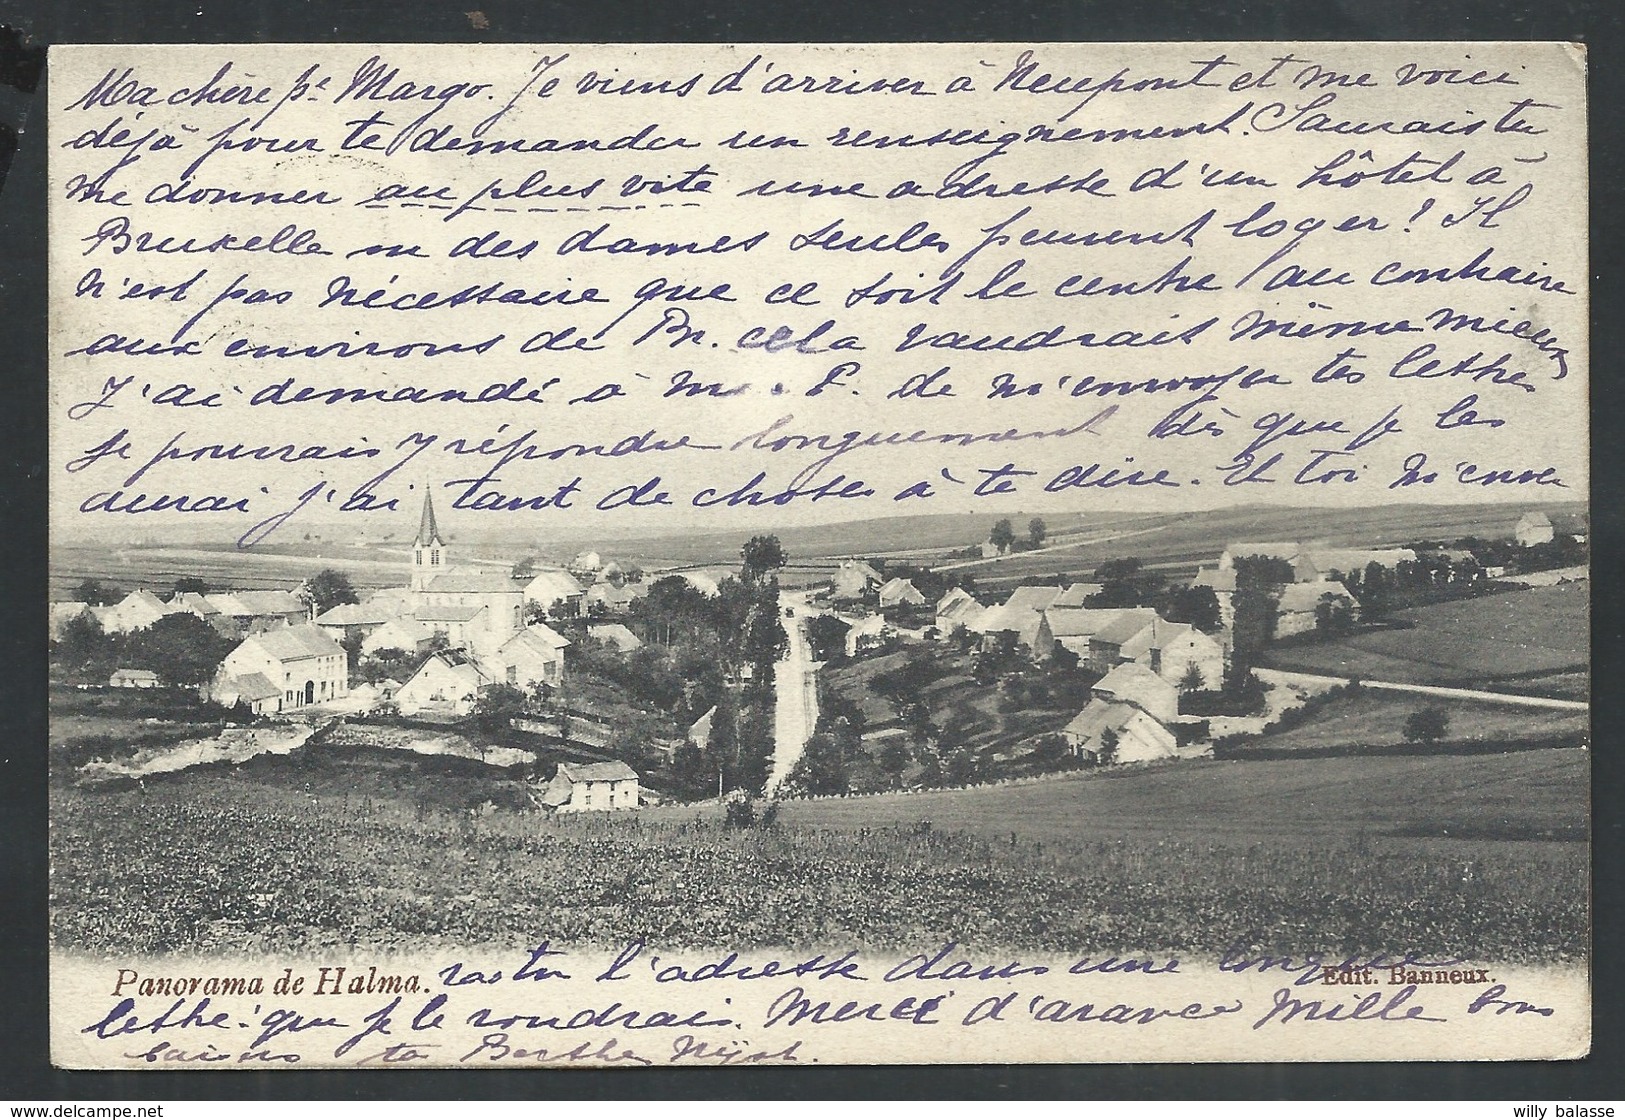 Ma chère pte Margo. Je viens d'arriver à Neupont et me voici
déjà pour te demander un renseignement. Saurais tu
me donner au plus vite une adresse d'un hôtel à
Bruxelle où des dames seules peuvent loger! Il
n'est pas nécessaire que ce soit le centre au contraire
aux environs de Br. cela vaudrait même mieux
J'ai demandé à M P. de m'envoyer tes lettres
je pourrais y répondre longuement dès que je les
aurai j'ai tant de choses à te dire. Et toi m'enver
Panorama de Halma.
ras tu l'adresse dans une longue
Edit. Banneux.
lettre! que je le voudrais. Merci d'avance Mille bons
baisers ta Berthe Nijst.
willy balasse